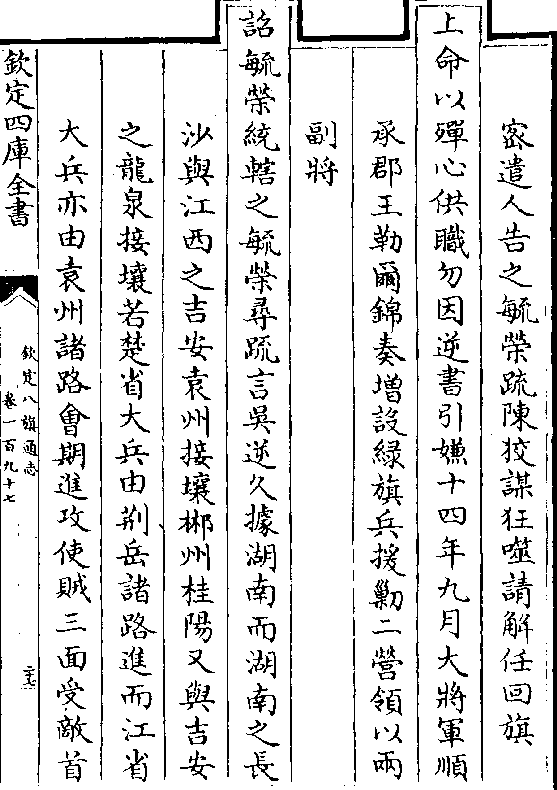 密遣人告之毓榮疏陳狡謀狂噬請解任回旗
上命以殫心供職勿因逆書引嫌十四年九月大將軍順
承郡王勒爾錦奏增設綠旗兵援勦二營領以兩
副將
詔毓榮統轄之毓榮尋疏言吳逆久據湖南而湖南之長
沙與江西之吉安袁州接壤郴州桂陽又與吉安
之龍泉接壤若楚省大兵由荆岳諸路進而江省
大兵亦由袁州諸路會期進攻使賊三面受敵首
欽定四庫全書
欽定八旗通志
卷一百九十七